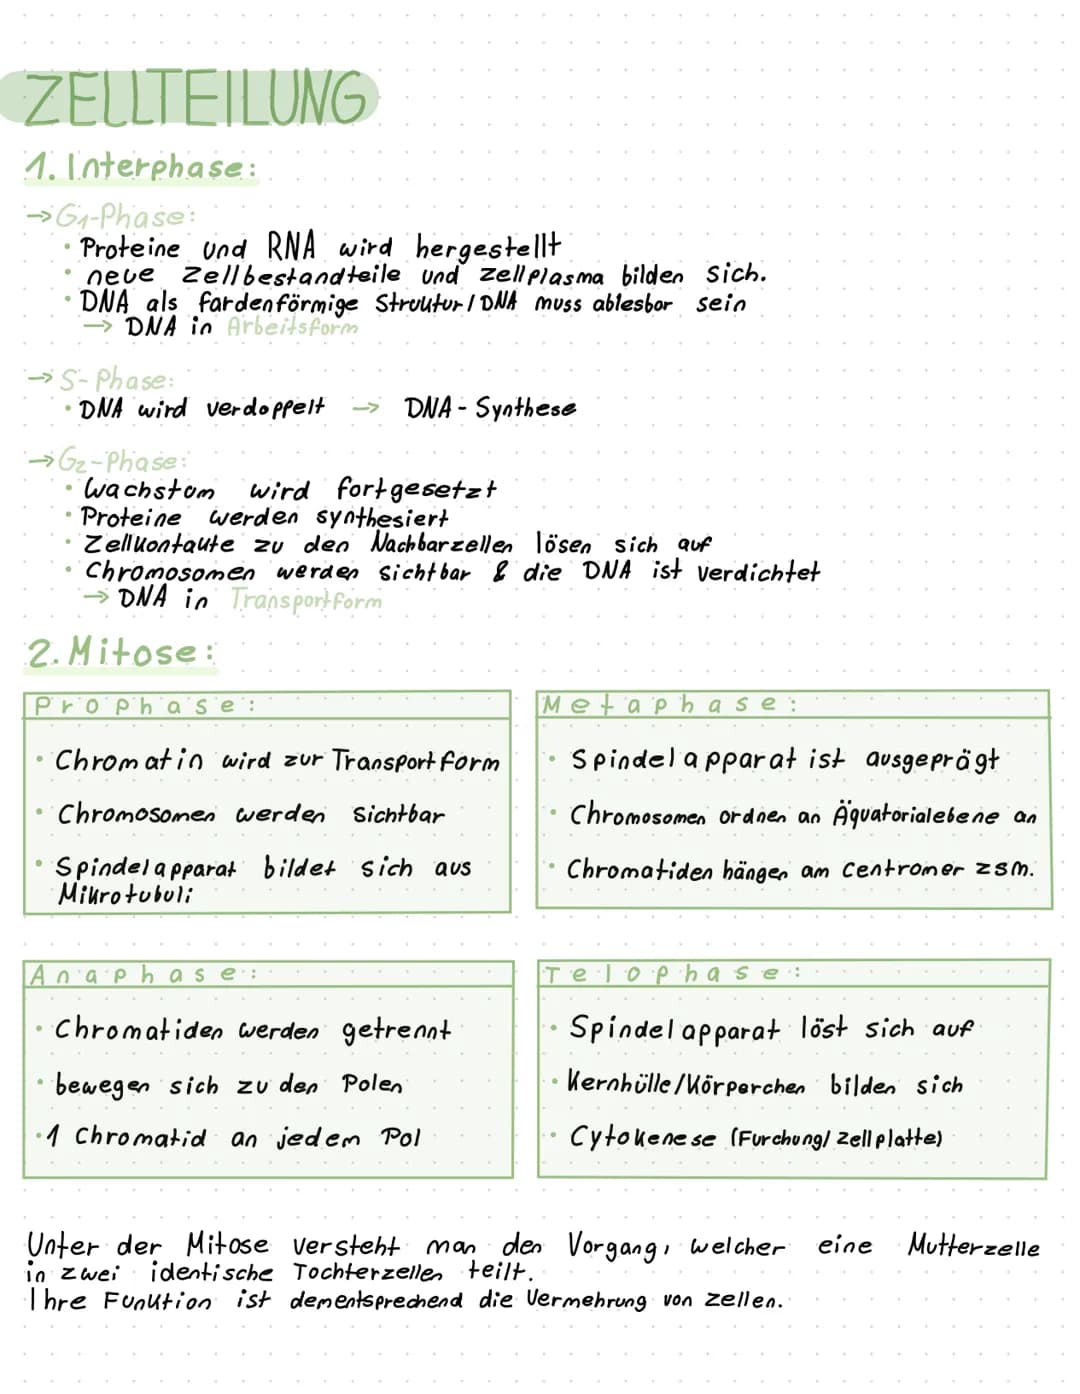 ZELLTEILUNG
1. Interphase:
→ G1-Phase:
• Proteine und RNA wird hergestellt
• neue Zellbestandteile und Zellplasma bilden sich.
• DNA als fardenförmige Struktur/DNA muss ablesbar sein
→ DNA in Arbeitsform
→ S-Phase:
• DNA wird verdoppelt → DNA-Synthese
→ G2-Phase:
• Wachstum wird fortgesetzt
• Proteine werden synthesiert
• Zellkontakte zu den Nachbarzellen lösen sich auf
• Chromosomen werden sichtbar & die DNA ist verdichtet
→ DNA in Transportform
2. Mitose:
Prophase:
• Chromatin wird zur Transportform
• Chromosomen werden sichtbar
• Spindelapparat bildet sich aus
Mikrotubuli
Metaphase:
• Spindelapparat ist ausgeprägt
• Chromosomen ordnen an Äquatorialebene an
• Chromatiden hängen am Centromer zsm.
Anaphase:
• Chromatiden werden getrennt
• bewegen sich zu den Polen
• 1 Chromatid an jedem Pol
Telophase:
• Spindelapparat löst sich auf
• Kernhülle/Körperchen bilden sich
• Cytokenese (Furchung/Zellplatte)
Unter der Mitose versteht man den Vorgang, welcher eine Mutterzelle
in zwei identische Tochterzellen teilt.
Ihre Funktion ist dementsprechend die Vermehrung von Zellen.